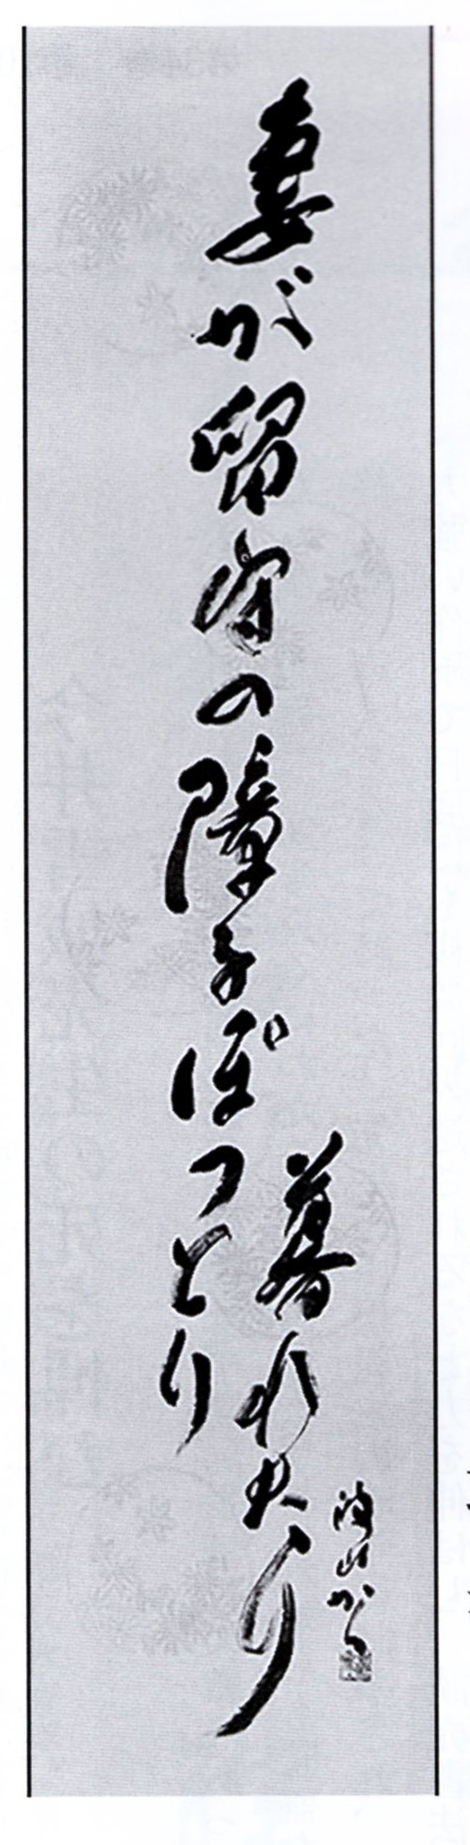 妻が留守の障子ぽつとり
暮れたり